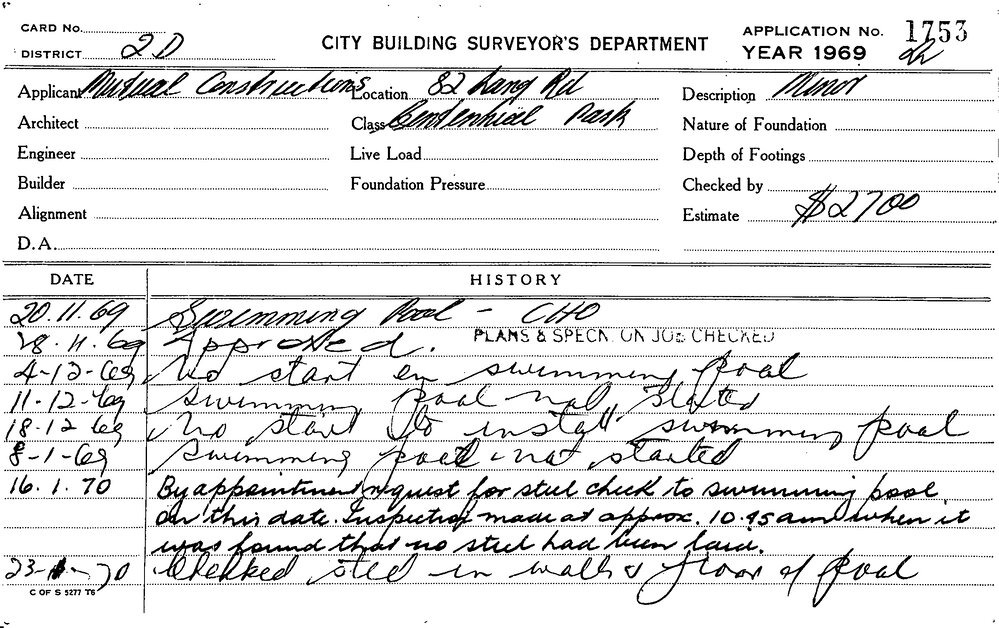 CARD No.
DISTRICT 2D
CITY BUILDING SURVEYOR'S DEPARTMENT
APPLICATION No. 1753
YEAR 1969
Applicant Mutual Constructions Location 82 Lang Rd Description Minor
Architect Class Centennial Park Nature of Foundation
Engineer Live Load Depth of Footings
Builder Foundation Pressure Checked by
Alignment Estimate $2700
D.A.
DATE HISTORY
20.11.69 Swimming Pool - CHO
28.11.69 Approved. PLANS & SPECN. ON JOB CHECKED
4-12-69 No start on swimming pool
11-12-69 Swimming pool not started
18-12 69 No start to install swimming pool
8-1-69 Swimming pool not started
16.1.70 By appointment request for steel check to swimming pool
on this date. Inspection made at approx. 10.45am when it
was found that no steel had been laid.
23-1-70 Checked steel in walls & floor of pool
C OF S 5277 T6